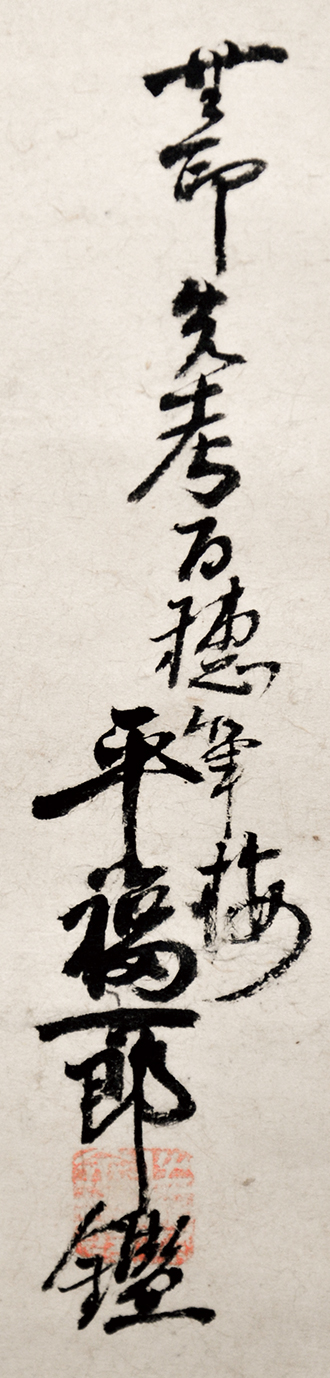 無印先考百穂筆梅
平福一郎鑑